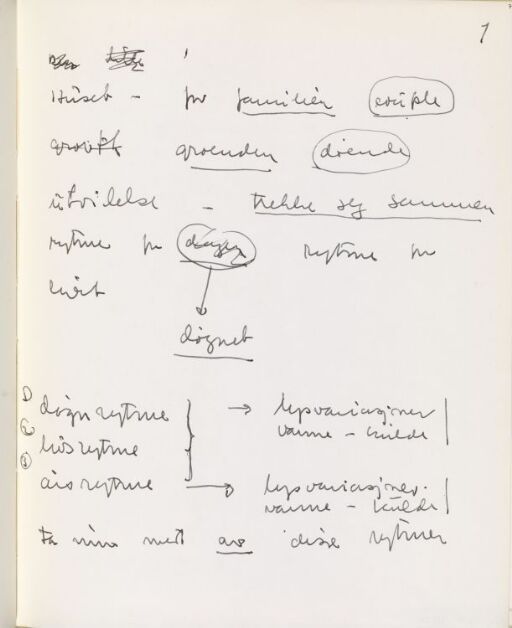 1
Huset - for familien couple
growth groenden döende
utvidelse - trekke seg sammen
rytme for dagen rytme for
livet
døgnet
1) døgnrytme → lysvariasjoner
varme - kulde
2) livsrytme
3) årsrytme → lysvariasjoner.
varme - kulde
Ta inn mest av disse rytmer